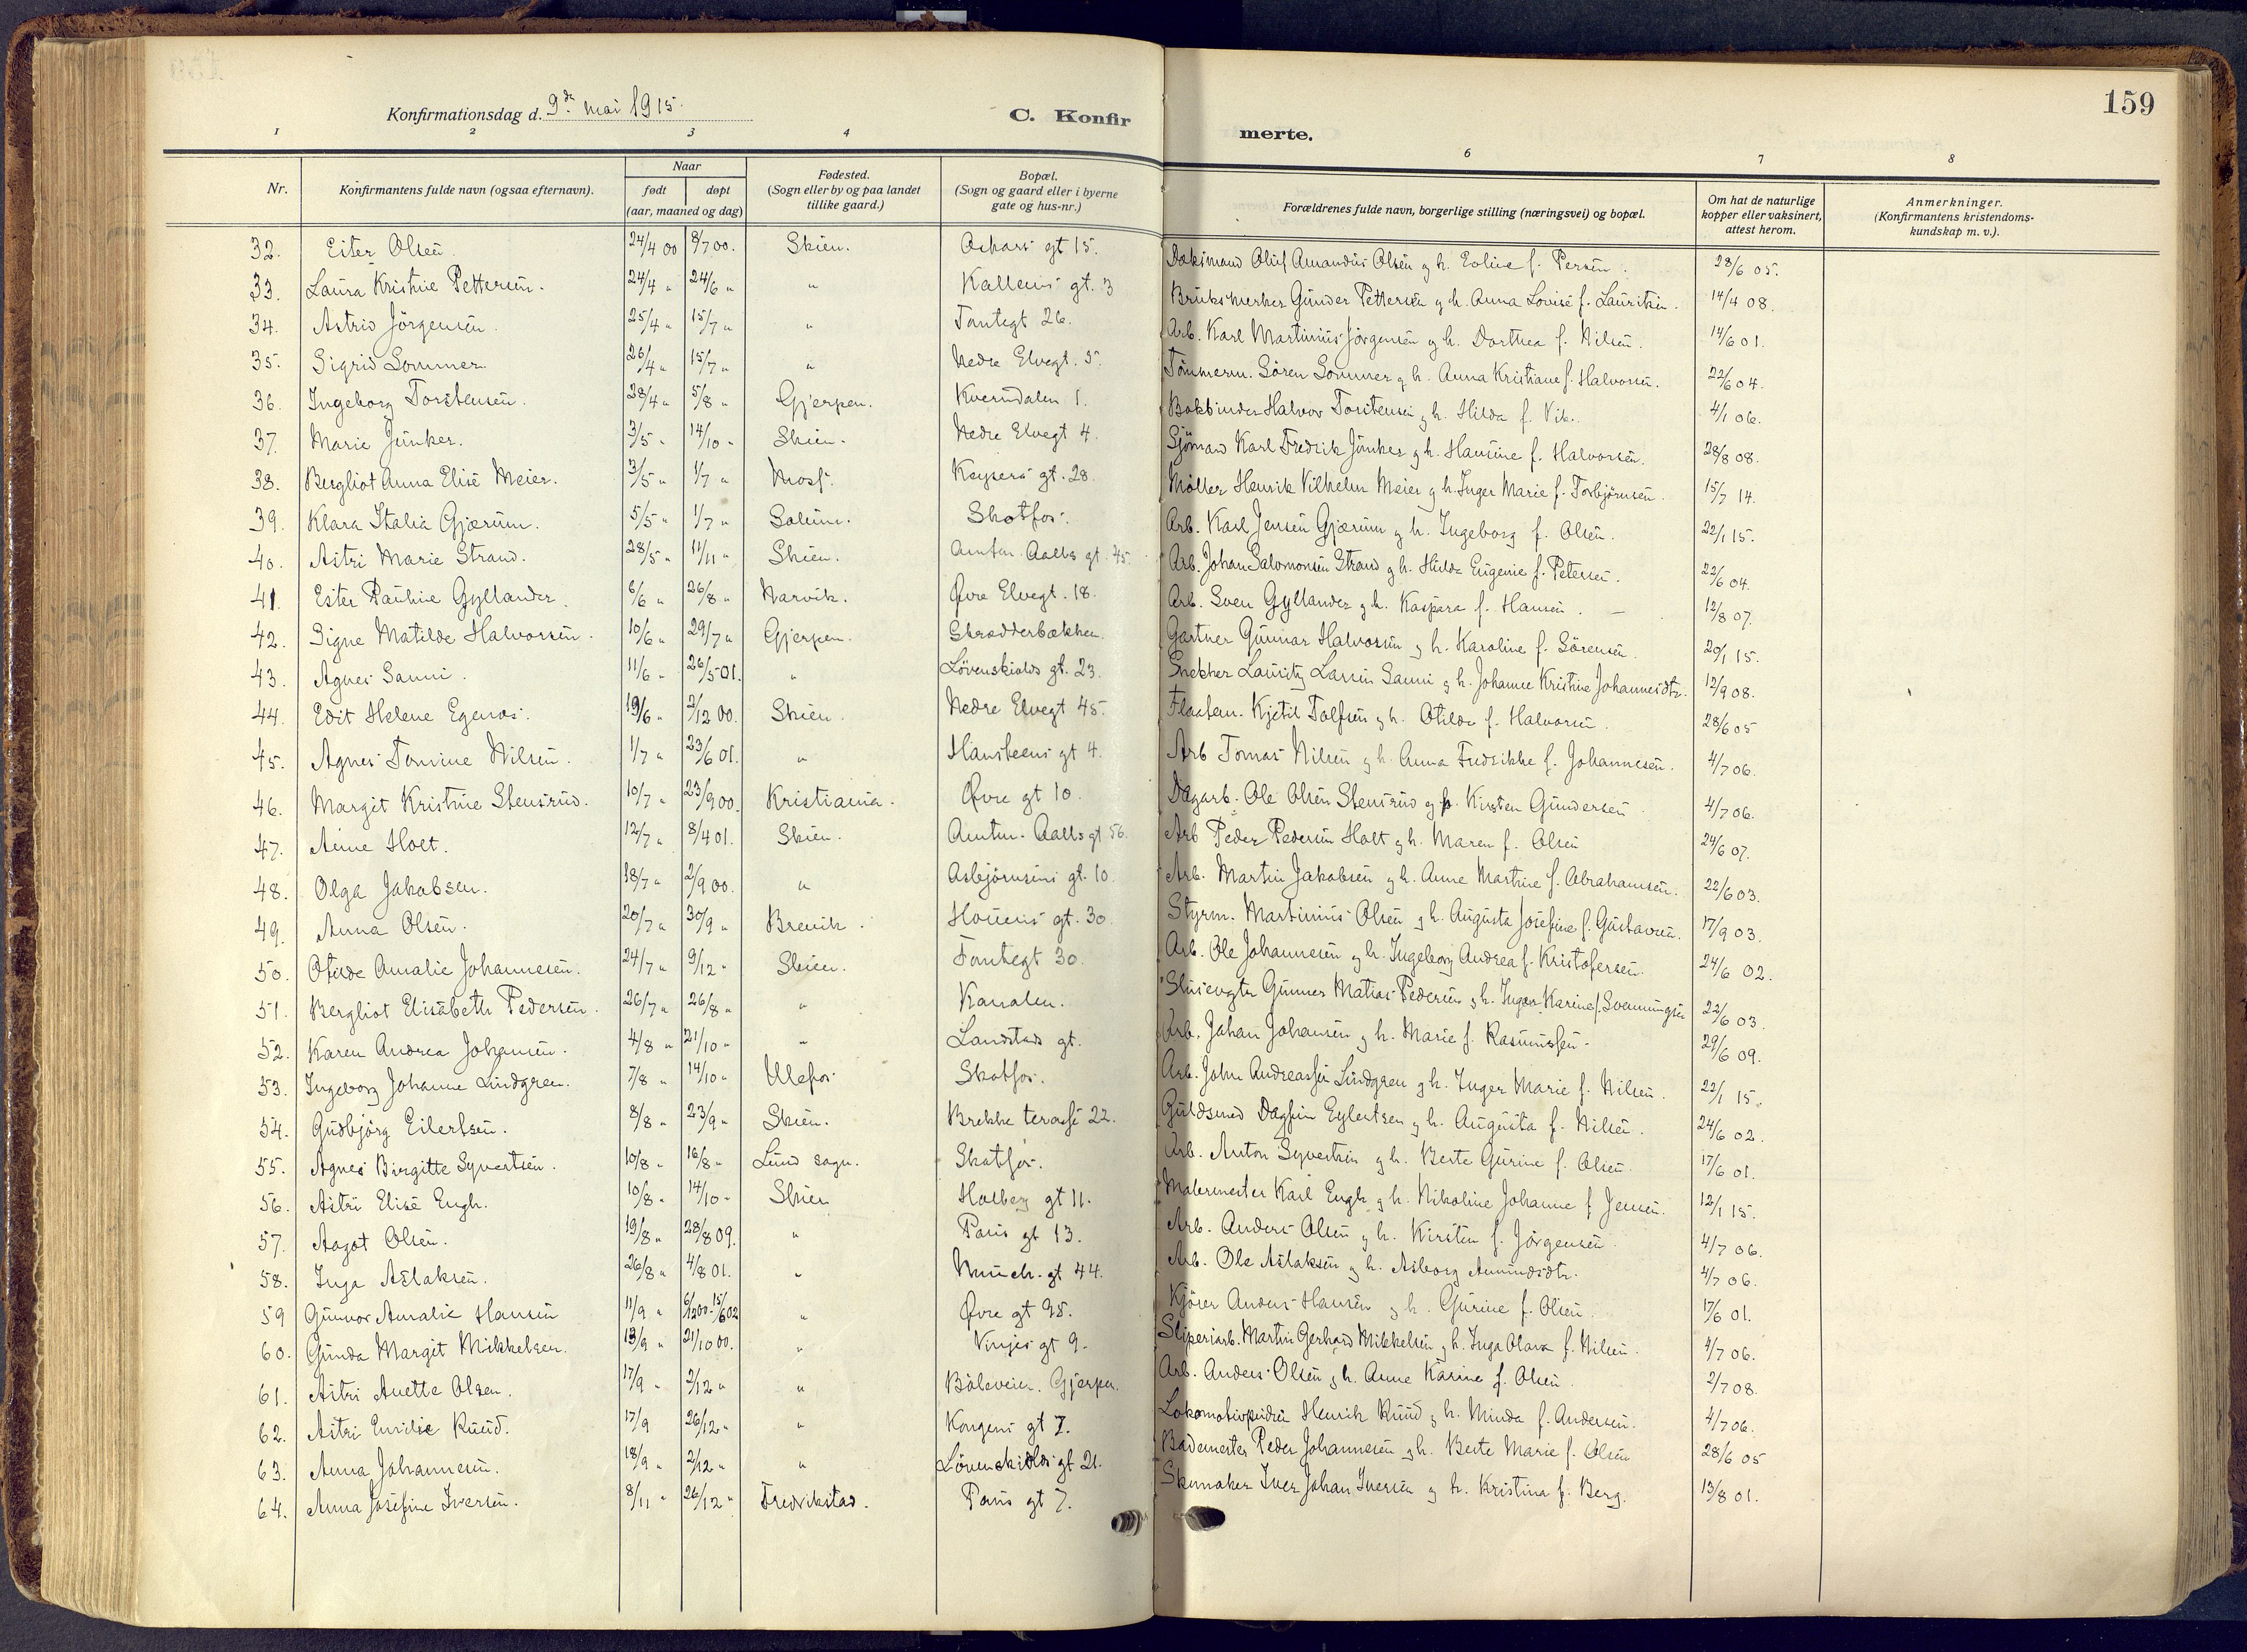 159
Konfirmationsdag d. 9de mai 1915.
C. Konfirmerte.
1 2 3 4 6 7 8
Nr.
Konfirmantens fulde navn (ogsaa efternavn).
Naar
født døpt
(aar, maaned og dag)
Fødested.
(Sogn eller by og paa landet
tillike gaard.)
Bopæl.
(Sogn og gaard eller i byerne
gate og hus-nr.)
Forældrenes fulde navn, borgerlige stilling (næringsvei) og bopæl.
Om hat de naturlige
kopper eller vaksinert,
attest herom.
Anmerkninger.
(Konfirmantens kristendoms-
kundskap m. v.).
32. Ester Olsen. 24/4 00 8/7 00. Skien. gt 15. Oluf Amandus Olsen g h. Eoline f. 28/6 05.
33. Laura Kristine Pettersen. 24/4 " 24/6 " " Kallens gt. 3 Gunder Pettersen g h. Anna Lovise f. Lauritsen. 14/4 08.
34. Astrid Jörgensen. 25/4 " 15/7 " " Tontegt 26. Arb. Karl Martinius Jörgensen g h. Dorthea f. Nilsen. 14/6 01.
35. Sigrid Sommer. 26/4 " 15/7 " " Nedre Elvegt. 5. Tömmerm. Sören Sommer g h. Anna Kristiane f. Halvorsen. 22/6 04.
36. Ingeborg Torstensen. 28/4 " 5/8 " Gjerpen. Kverndalen 1. Bokbinder Halvor Torstensen g h. Hilda f. Vik. 4/1 06.
37. Marie Junker. 3/5 " 14/10 " Skien. Nedre Elvegt 4. Sjömand Karl Fredrik Junker g h. Hansine f. Halvorsen. 28/8 08.
38. Bergliot Anna Elise Meier. 3/5 " 1/7 " Moss. Keysers gt. 28. Möller Henrik Vilhelm Meier g h. Inger Marie f. Torbjörnsen. 15/7 14.
39. Klara Italia Gjærum. 5/5 " 1/7 " Solum. Skotfos. Arb. Karl Jensen Gjærum g h. Ingeborg f. Olsen. 22/1 15.
40. Astri Marie Strand. 28/5 " 11/11 " Skien. Amtm. Aalls gt. 45. Arb. Johan Salomonsen Strand g h. Hilda Eugenie f. Petersen. 22/6 04.
41. Ester Pauline Gyllander. 6/6 " 26/8 " Narvik. Øvre Elvegt. 18. Arb. Sven Gyllander g h. Kaspara f. Hansen. 12/8 07.
42. Signe Matilde Halvorsen. 10/6 " 29/7 " Gjerpen. Skradderbækken. Gartner Gunnar Halvorsen g h. Karoline f. Sörensen. 20/1 15.
43. Agnes Sanni. 11/6 " 26/5 01. " Lövenskiolds gt. 23. Snekker Lauritz Larsen Sanni g h. Johanne Kristine Johannesdtr. 12/9 08.
44. Edit Helene Egenæs. 19/6 " 2/12 00. Skien. Nedre Elvegt 45. Kjetil Tolfsen g h. Otilde f. Halvorsen. 28/6 05
45. Agnes Tomine Nilsen. 1/7 " 23/6 01. " Hansteens gt 4. Arb Tomas Nilsen g h. Anna Fredrikke f. Johannesen. 4/7 06.
46. Margit Kristine Stensrud. 10/7 " 23/9 00. Kristiania. Øvre gt 10. Dagarb. Ole Olsen Stensrud g h. Kirsten Gundersen. 4/7 06.
47. Anne Holt. 12/7 " 8/4 01. Skien. Amtm. Aalls gt 56. Arb Peder Pedersen Holt g h. Maren f. Olsen 24/6 07.
48. Olga Jakobsen. 18/7 " 2/9 00. " Asbjörnsens gt. 10. Arb. Martin Jakobsen g h. Anne Martine f. Abrahamsen. 22/6 03.
49. Anna Olsen. 20/7 " 30/9 " Brevik. Houens gt. 30. Styrm. Martinius Olsen g h. Augusta Josefine f. Gustavsen. 17/9 03.
50. Otilde Amalie Johannesen. 24/7 " 9/12 " Skien. Tontegt 30. Arb. Ole Johannesen g h. Ingeborg Andrea f. Kristofersen. 24/6 02.
51. Bergliot Elisabeth Pedersen. 26/7 " 26/8 " " Kanalen. Slusevgtr Gunner Matias Pedersen g h. Inger Karine f. Svenningsen 22/6 03.
52. Karen Andrea Johansen. 4/8 " 21/10 " " Landstads gt. Arb. Johan Johansen g h. Marie f. Rasmussen. 29/6 09.
53. Ingeborg Johanne Lindgren. 7/8 " 14/10 " Ulefos. Skotfos. Arb. John Andreassen Lindgren g h. Inger Marie f. Nilsen. 22/1 15.
54. Gudbjörg Eilertsen. 8/8 " 23/9 " Skien. Brekke terasse 22. Guldsmed Dagfin Eylertsen g h. Augusta f. Nilsen. 24/6 02.
55. Agnes Birgitte Syvertsen. 10/8 " 16/8 " Lund sogn. Skotfos. Arb. Anton Syvertsen g h. Berte Gurine f. Olsen. 17/6 01.
56. Astri Elise Engh. 10/8 " 14/10 " Skien Holberg gt 11. Malermester Karl Engh g h. Nikoline Johanne f Jensen. 12/1 15.
57. Aagot Olsen. 19/8 " 28/8 09. " Paris gt 13. Arb. Anders Olsen g h. Kirsten f. Jörgensen. 4/7 06.
58. Inga Aslaksen. 26/8 " 4/8 01. " Munch. gt 44. Arb. Ole Aslaksen g h. Asborg Amundsdtr. 4/7 06.
59 Gunvor Amalie Hansen 11/9 " 6/12 00 - 15/6 02 " Øvre gt 95. Kjörer Anders Hansen g h. Gurine f. Olsen. 17/6 01.
60. Gunda Margit Mikkelsen. 13/9 " 21/10 00. " Vinjes gt 9. Sliperiarb. Martin Gerhard Mikkelsen g h. Inga Olava f. Nilsen. 4/7 06.
61. Astri Anette Olsen. 17/9 " 2/12 " " Böleveien. Gjerpen. Arb. Anders Olsen g h. Anne Karine f. Olsen. 2/7 08.
62. Astri Emilie Ruud. 17/9 26/12 " " Kongens gt 7. Henrik Ruud g h. Minda f. Andersen. 4/7 06.
63. Anna Johannesen. 18/9 " 2/12 " " Lövenskiolds gt 21. Bademester Peder Johannesen g h. Berte Marie f. Olsen 28/6 05
64. Anna Josefine Iversen. 8/11 " 26/12 " Fredrikstad. Paris gt 7. Skomaker Iver Johan Iversen g h. Kristina f. Berg. 13/8 01.